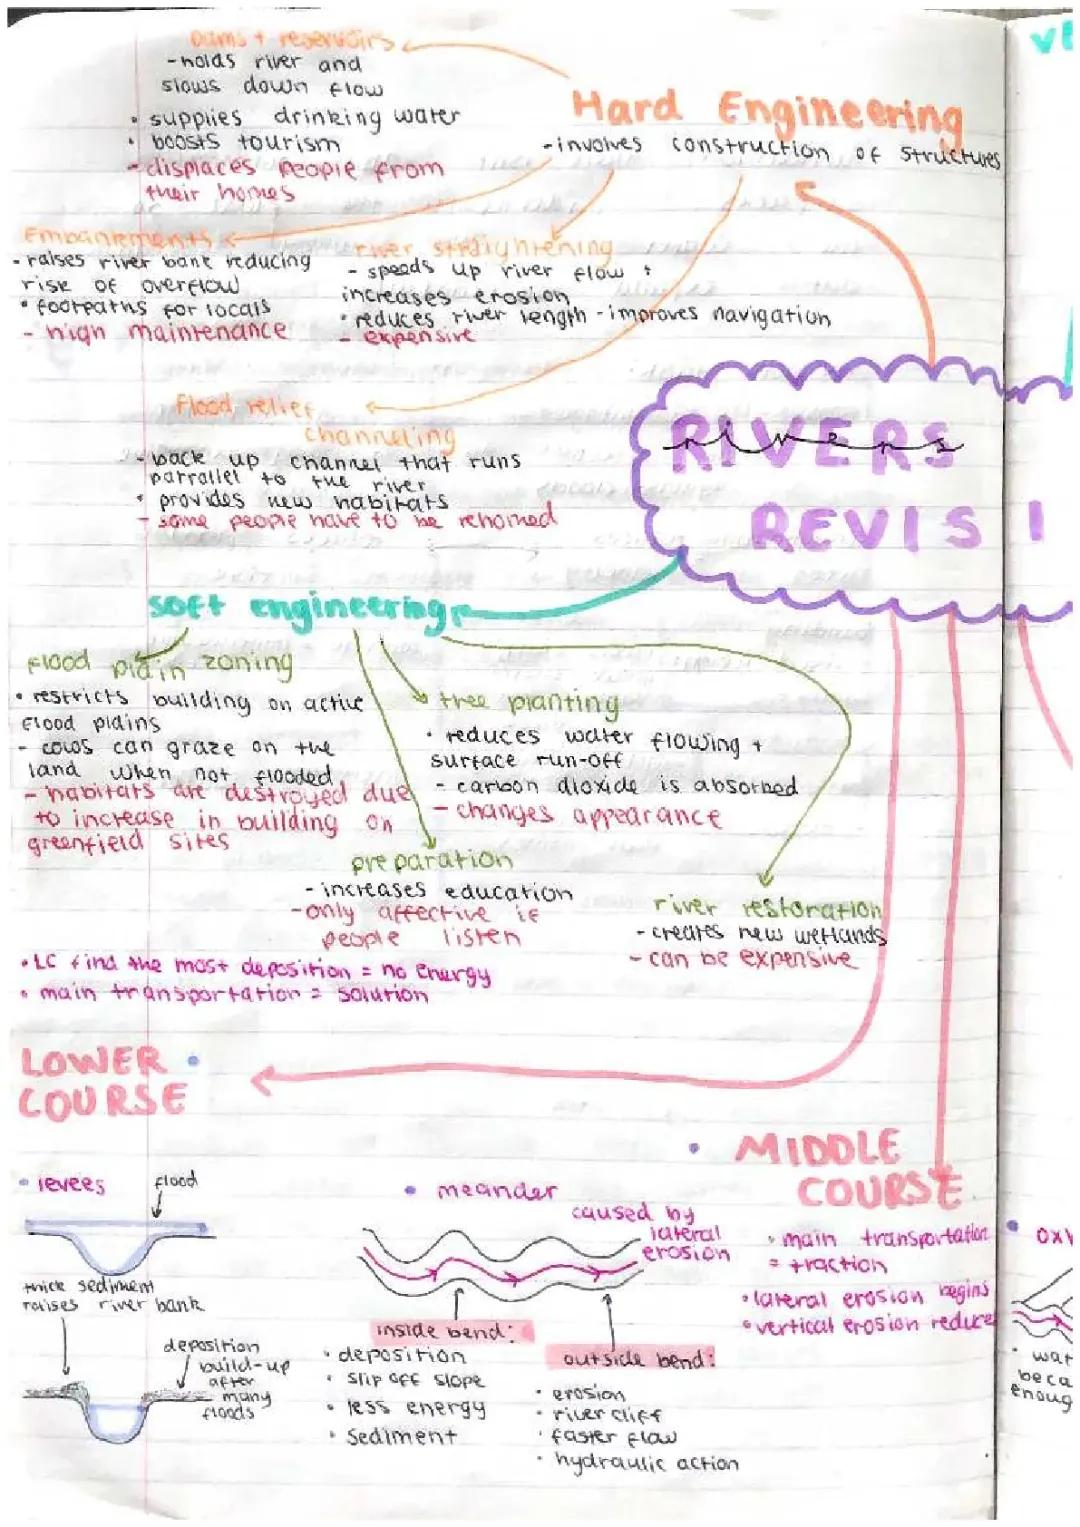 Dams + reservoirs
- holds river and
slows down flow
• supplies drinking water
• boosts tourism
- displaces people from
their homes
Hard Engineering
- involves construction of structures
Embankments
- raises river bank reducing
rise of overflow
• footpaths for locals
- high maintenance
river straightening
- speeds up river flow +
increases erosion
• reduces river length - improves navigation
- expensive
Flood relief
channeling
- back up channel that runs
parrallel to the river
• provides new habitats
- some people have to be rehomed
RIVERS
rivers
REVISI
soft engineering
flood plain zoning
• restricts building on active
flood plains
- cows can graze on the
land when not flooded
- habitats are destroyed due
to increase in building on
greenfield sites
tree planting
• reduces water flowing +
surface run-off
- carbon dioxide is absorbed
- changes appearance
preparation
- increases education
- only affective if
people listen
river restoration
- creates new wetlands
- can be expensive
• LC find the most deposition = no energy
• main transportation = solution
LOWER
COURSE
• levees
flood
thick sediment
raises river bank
deposition
build-up
after
many
floods
• meander
caused by
lateral
erosion
inside bend:
• deposition
• slip off slope
• less energy
• Sediment
outside bend:
• erosion
• river cliff
• faster flow
• hydraulic action
• MIDDLE
COURSE
• main transportation
= traction
• lateral erosion begins
• vertical erosion reduces
• wat
beca
enoug